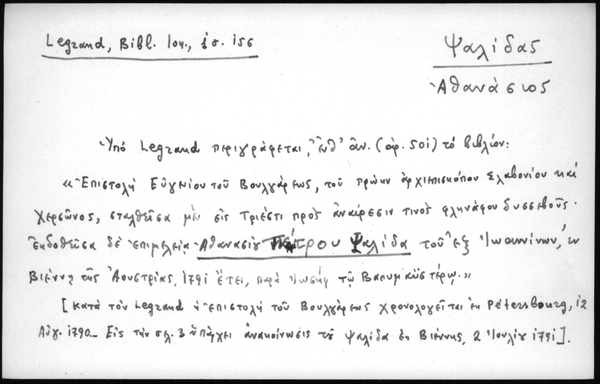 Legrand, Bibl. Ion., ἐσ. 156
Ψαλίδας
Ἀθανάσιος
Ὑπό Legrand περιγράφεται, ἔνθ' ἀν. (ἀρ. 501) τό βιβλίον:
«Ἐπιστολή Εὐγενίου τοῦ Βουλγάρεως, τοῦ πρώην ἀρχιεπισκόπου Σλαβονίου καί
Χερσῶνος, σταλθεῖσα μέν εἰς Τριέστι πρός ἀναίρεσιν τινός φληνάφου δυσσεβοῦς.
ἐκδοθεῖσα δέ ἐπιμελείᾳ Ἀθανασίου Πέτρου Ψαλίδα τοῦ ἐξ Ἰωαννίνων, ἐν
Βιέννῃ τῆς Ἀουστρίας, 1791 ἔτει, παρά Ἰωσήφ τῷ Βαουμαϋστέρῳ.»
[κατά τόν Legrand ἡ ἐπιστολή τοῦ Βουλγάρεως χρονολογεῖται ἐν Pétersbourg, 12
Αὐγ. 1790... Εἰς τήν σελ. 3 ὑπάρχει ἀνακοίνωσις τοῦ Ψαλίδα ἐν Βιέννῃ, 2 Ἰουλίου 1791].